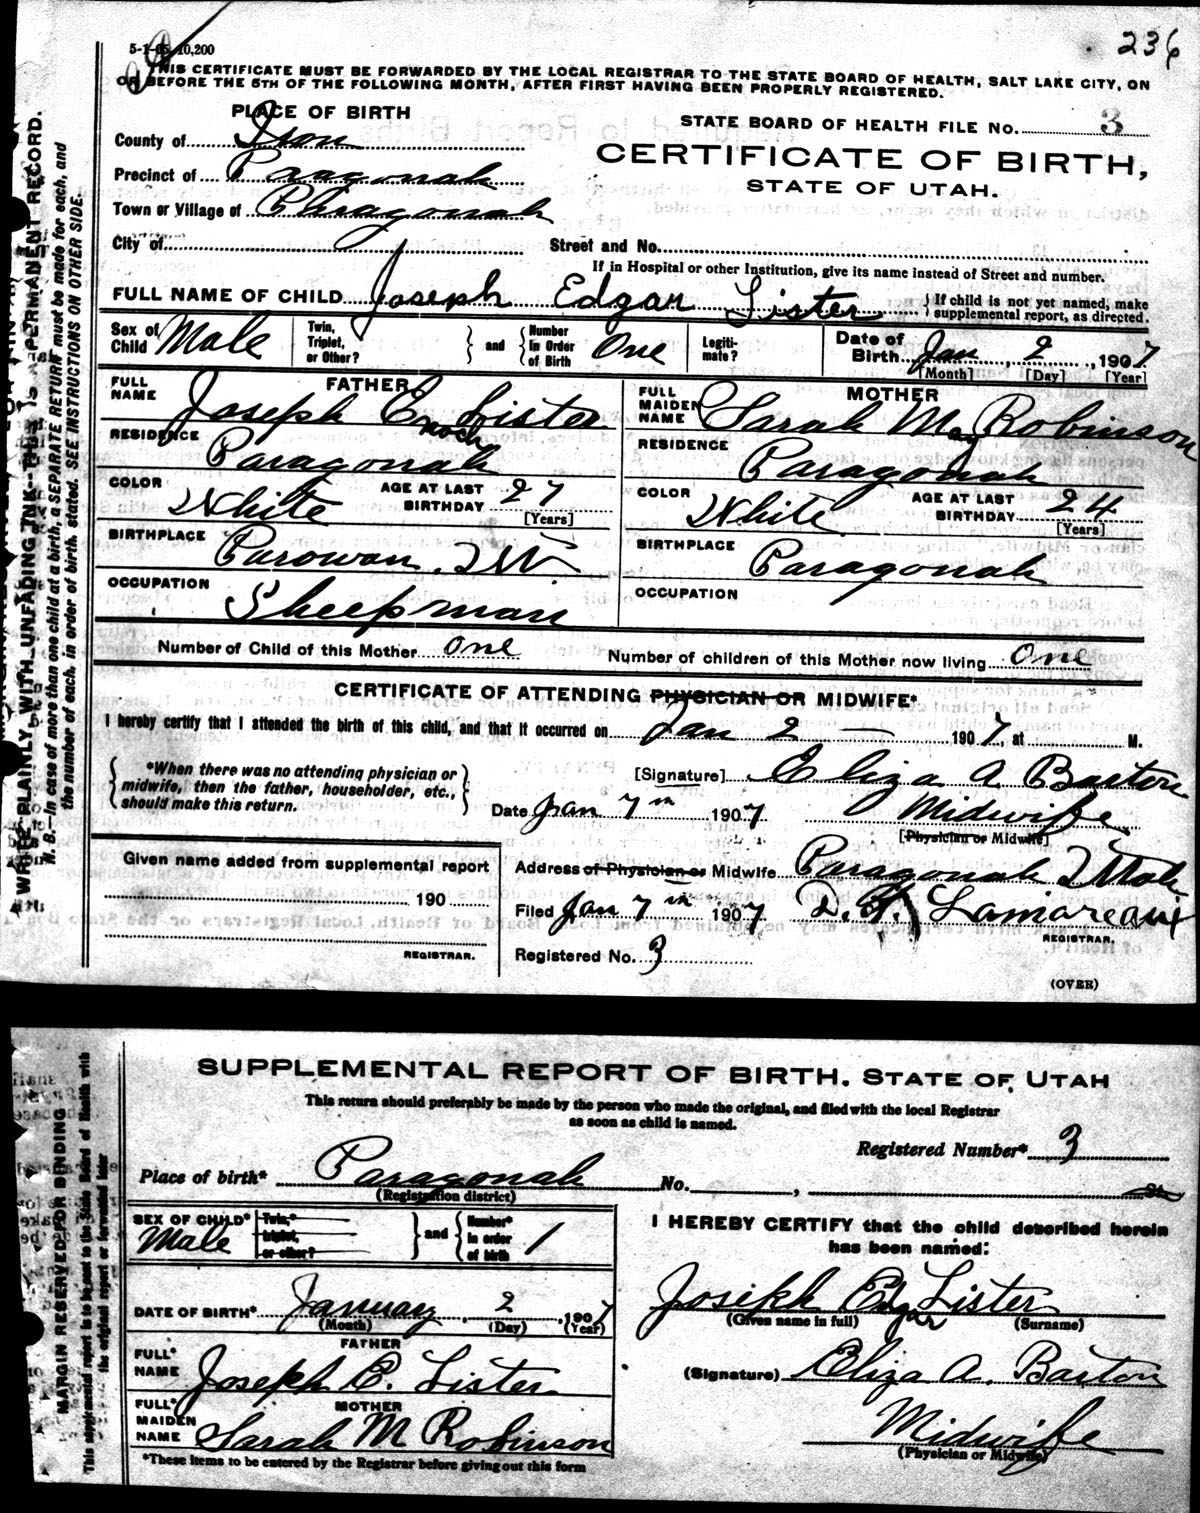 236
5-1-05 10,200
THIS CERTIFICATE MUST BE FORWARDED BY THE LOCAL REGISTRAR TO THE STATE BOARD OF HEALTH, SALT LAKE CITY, ON
OR BEFORE THE 5TH OF THE FOLLOWING MONTH, AFTER FIRST HAVING BEEN PROPERLY REGISTERED.
PLACE OF BIRTH
STATE BOARD OF HEALTH FILE NO. 3
County of Iron
CERTIFICATE OF BIRTH,
STATE OF UTAH.
Precinct of Paragonah
Town or Village of Paragonah
City of Street and No.
If in Hospital or other Institution, give its name instead of Street and number.
FULL NAME OF CHILD Joseph Edgar Lister { If child is not yet named, make supplemental report, as directed.
Sex of Child Male Twin, Triplet, or Other? } and { Number In Order of Birth One Legiti-mate? Date of Birth Jan 2, 1907
[Month] [Day] [Year]
FATHER
FULL NAME Joseph Enoch Lister
RESIDENCE Paragonah
COLOR White AGE AT LAST BIRTHDAY 27
[Years]
BIRTHPLACE Parowan,
OCCUPATION Sheepman
MOTHER
FULL MAIDEN NAME Sarah May Robinson
RESIDENCE Paragonah
COLOR White AGE AT LAST BIRTHDAY 24
[Years]
BIRTHPLACE Paragonah
OCCUPATION
Number of Child of this Mother One Number of children of this Mother now living One
CERTIFICATE OF ATTENDING PHYSICIAN OR MIDWIFE*
I hereby certify that I attended the birth of this child, and that it occurred on Jan 2 — 1907, at M.
{ *When there was no attending physician or midwife, then the father, householder, etc., should make this return. }
[Signature] Eliza A Barton
Date Jan 7th 1907 Midwife
[Physician or Midwife]
Given name added from supplemental report
190
REGISTRAR.
Address of Physician or Midwife Paragonah Utah
Filed Jan 7th 1907 Lamoreaux
REGISTRAR.
Registered No. 3
(OVER)
WRITE PLAINLY WITH UNFADING INK—THIS IS A PERMANENT RECORD.
N. B.—In case of more than one child at a birth, a SEPARATE RETURN must be made for each, and
the number of each, in order of birth, stated. SEE INSTRUCTIONS ON OTHER SIDE.
SUPPLEMENTAL REPORT OF BIRTH. STATE OF UTAH
This return should preferably be made by the person who made the original, and filed with the local Registrar
as soon as child is named.
Registered Number* 3
Place of birth* Paragonah No. , St.
(Registration district)
SEX OF CHILD* Male Twin,* triplet, or other? } and { Number* in order of birth 1
DATE OF BIRTH* January 2, 1907
(Month) (Day) (Year)
FATHER
FULL* NAME Joseph E. Lister
MOTHER
FULL* MAIDEN NAME Sarah M Robinson
*These items to be entered by the Registrar before giving out this form
I HEREBY CERTIFY that the child described herein
has been named:
Joseph Edgar Lister
(Given name in full) (Surname)
(Signature) Eliza A. Barton
Midwife
(Physician or Midwife)
MARGIN RESERVED FOR BINDING
This supplemental report is to be sent to the State Board of Health with
the original report or forwarded later